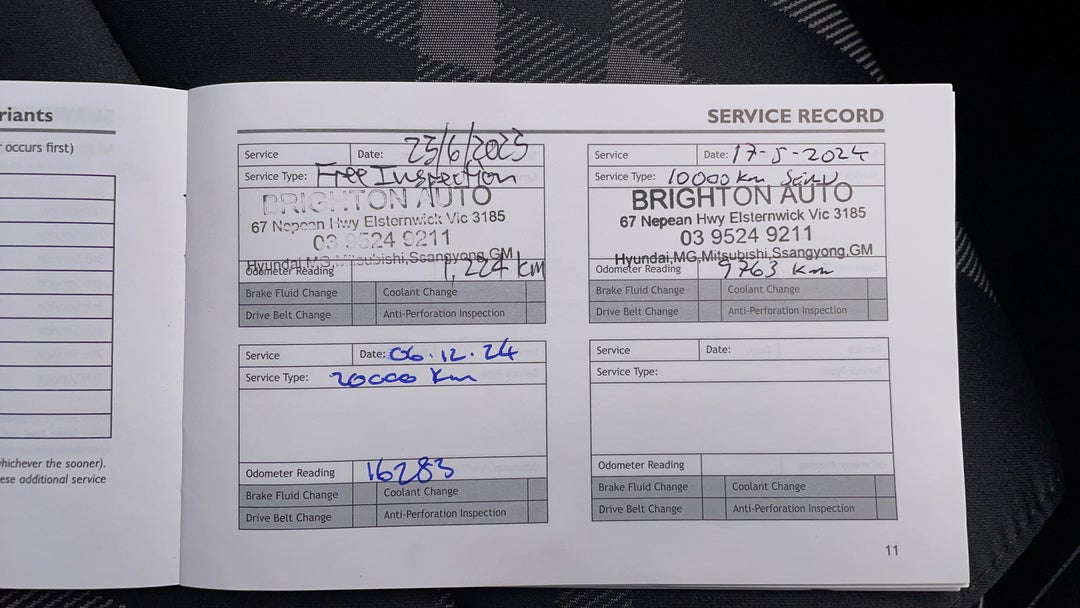 riants
occurs first)
hichever the sooner).
ese additional service
SERVICE RECORD
Service Date: 23/6/2023
Service Type: Free Inspection
BRIGHTON AUTO
67 Nepean Hwy Elsternwick Vic 3185
03 9524 9211
Hyundai,MG,Mitsubishi,Ssangyong,GM
Odometer Reading 1,224 km
Brake Fluid Change Coolant Change
Drive Belt Change Anti-Perforation Inspection
Service Date: 17-5-2024
Service Type: 10000 km
BRIGHTON AUTO
67 Nepean Hwy Elsternwick Vic 3185
03 9524 9211
Hyundai,MG,Mitsubishi,Ssangyong,GM
Odometer Reading 9763 km
Brake Fluid Change Coolant Change
Drive Belt Change Anti-Perforation Inspection
Service Date: 06.12.24
Service Type: 20000 km
Odometer Reading 16283
Brake Fluid Change Coolant Change
Drive Belt Change Anti-Perforation Inspection
Service Date:
Service Type:
Odometer Reading
Brake Fluid Change Coolant Change
Drive Belt Change Anti-Perforation Inspection
11